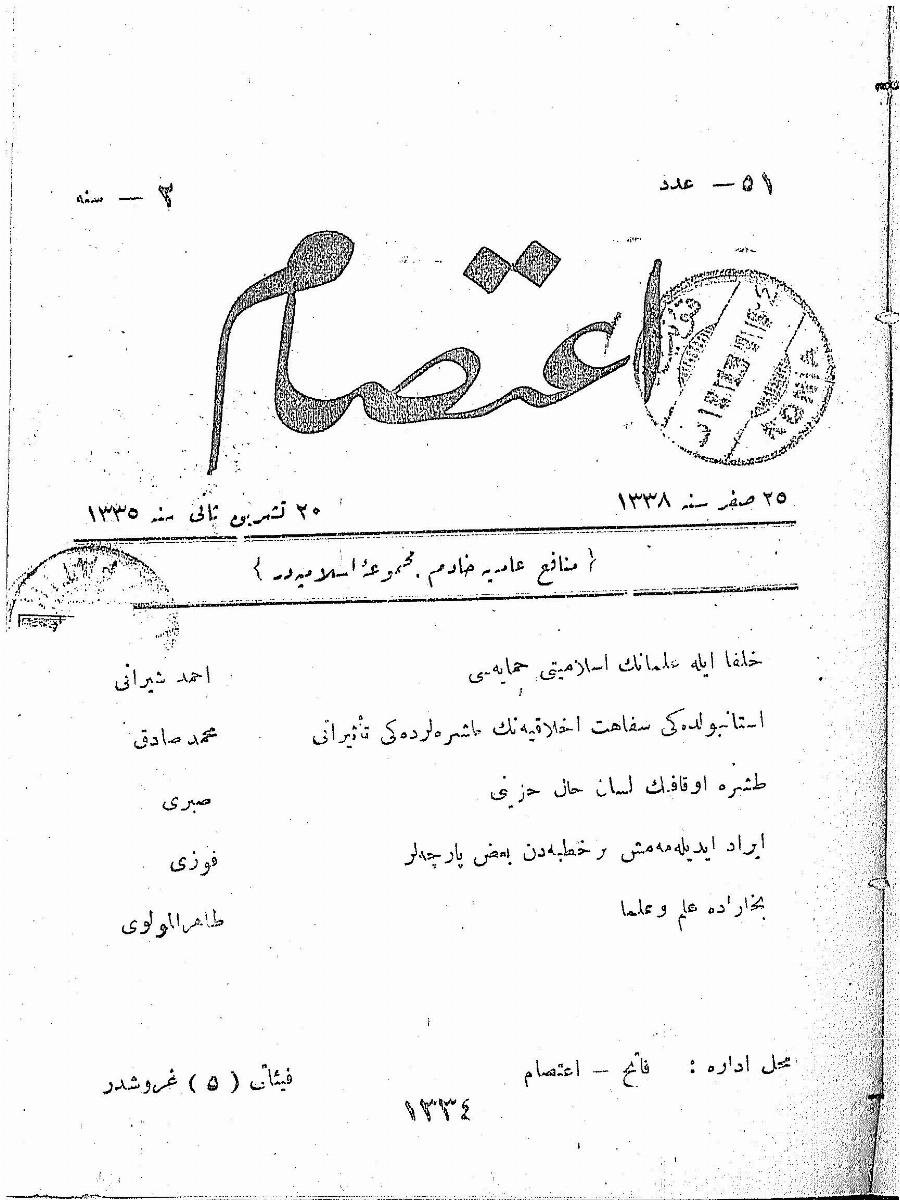 ٥١ — عدد
٢ — سنه
اعتصام
قونيه
KONIA
٢٥ صفر سنه ١٣٣٨
٢٠ تشرين ثانى سنه ١٣٣٥
{ منافع عامه‌يه خادم مجموعۀ اسلاميه‌در }
خلفا ايله علمانك اسلاميتى حمايه‌سى احمد شيرانى
استانبولده‌كى سفاهت اخلاقيه‌نك طشره‌لرده‌كى تأثيراتى محمد صادق
طشره اوقافنك لسان حال حزينى صبرى
ايراد ايديله‌مه‌مش بر خطبه‌دن بعض پارچه‌لر فوزى
بخاراده علم و علما طاهر المولوى
محل اداره : فاتح — اعتصام
فيئاتى ( ٥ ) غروشدر
١٣٣٤